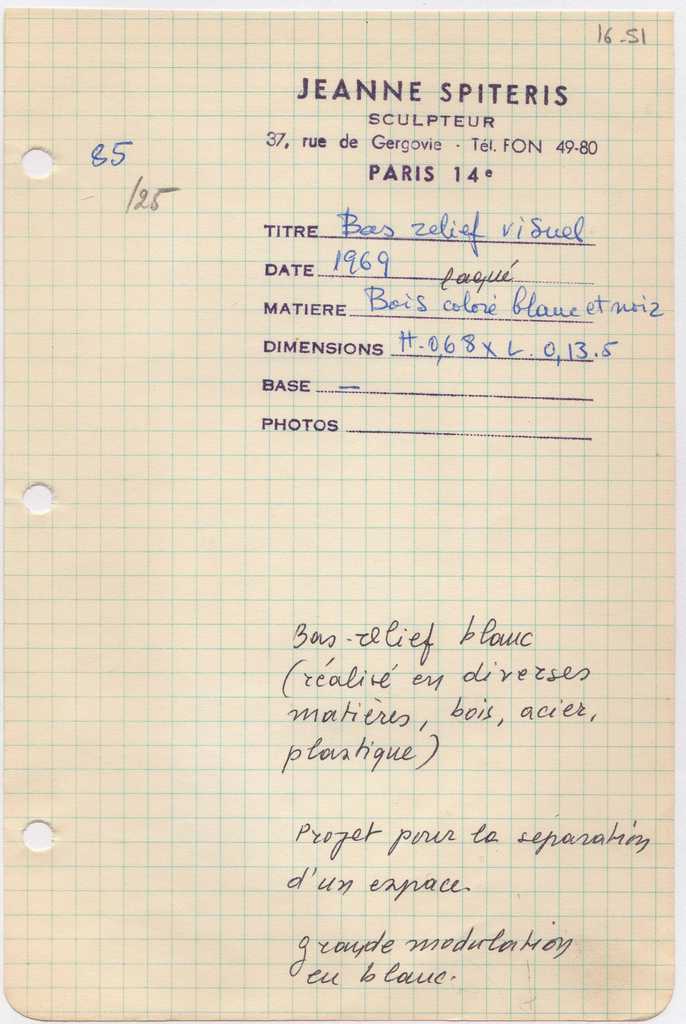 16-51
JEANNE SPITERIS
SCULPTEUR
37, rue de Gergovie - Tél. FON 49-80
PARIS 14e
85
/25
TITRE Bas relief visuel
DATE 1969
laqué
MATIERE Bois coloré blanc et noir
DIMENSIONS H-0,68 x L. 0,13.5
BASE —
PHOTOS
Bas-relief blanc
(réalisé en diverses
matières, bois, acier,
plastique)
Projet pour la séparation
d'un espace.
grande modulation
en blanc.